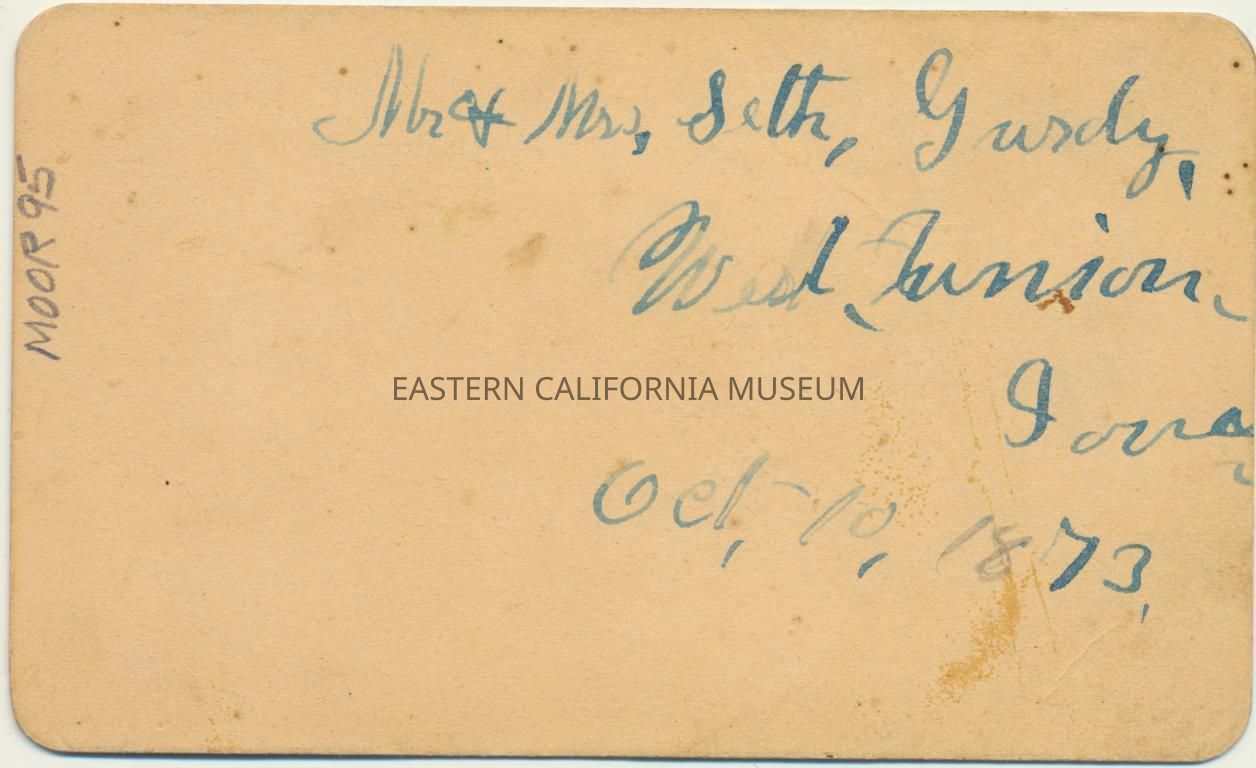 Mr & Mrs, Seth, Gurdy,
West, Junion,
Iowa
Oct, 10, 1873,
MOOR 95
EASTERN CALIFORNIA MUSEUM